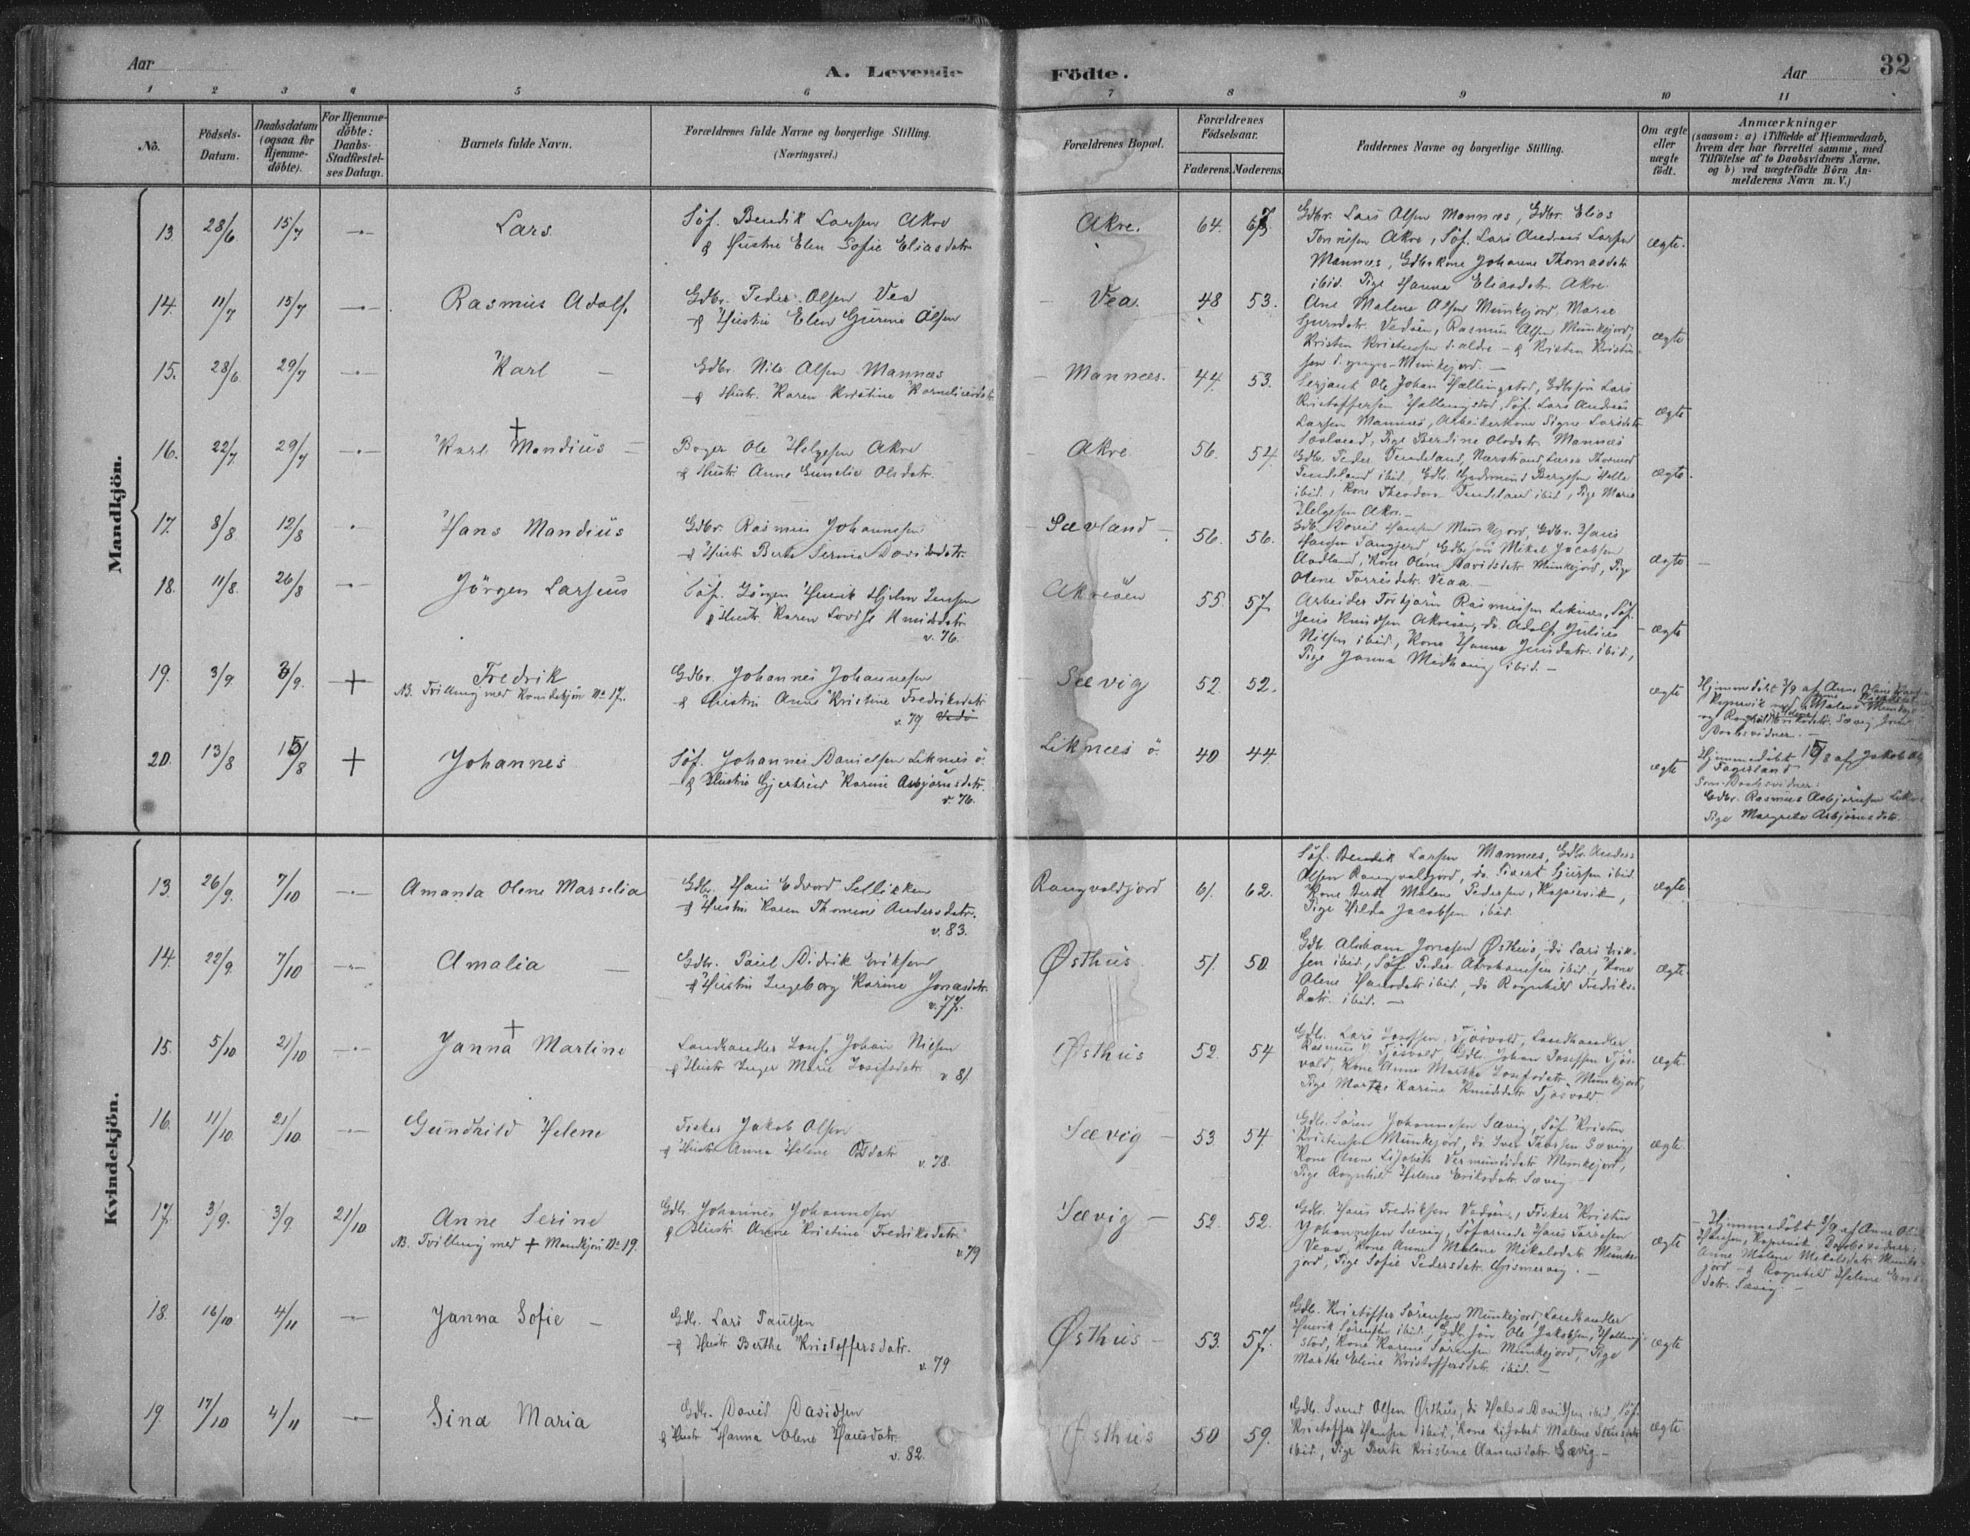 Aar
A. Levende Födte.
Aar 32
1 2 3 4 5 6 7 8 9 10 11
No.
Födsels-Datum.
Daabsdatum (ogsaa for Hjemme-döbte).
For Hjemme-döbte: Daabs-Stadfæstel-ses Datum.
Barnets fulde Navn.
Forældrenes fulde Navne og borgerlige Stilling.
(Næringsvei.)
Forældrenes Bopæl.
Forældrenes Födselsaar.
Faderens. Moderens.
Faddernes Navne og borgerlige Stilling.
Om ægte eller uægte födt.
Anmærkninger
(saasom: a) i Tilfælde af Hjemmedaab, hvem der har forrettet samme, med Tilföielse af to Daabsvidners Navne, og b) ved uægtefödte Börn An-melderens Navn m. V.)
Mandkjön.
13. 28/6 15/7 Lars
Söf. Bendik Larsen Akre
& Hustru Elen Sofie Eliasdatr.
Akre. 64. 67
Gdbr. Lars Olsen Mannes, Gdbr. Elias
Tönnesen Akre, Söf. Lars Andreas Larsen
Mannes, Gdbrkone Johanne Thomasdatr
ibid. Pige Hanna Eliasdatr. Akre.
ægte.
14. 11/7 15/7 Rasmus Adolf.
Gdbr. Peder Olsen Vea
& Hustru Elen Gurine Olsen
Vea. 48 53.
Ane Malene Olsen Munkejord, Marie
Rasmus Olsen Munkejord,
Kristen Kristensen d. ældre & Kristen Kristen-
sen d. yngre Munkejord.
ægte
15. 28/6 29/7 Karl
Gdbr. Nils Olsen Mannes
& Hustr. Karen Kristine Korneliusdtr
Mannæs. 44. 53.
Serjant Ole Johan Hallingstad, Gdbrsön Lars
Kristoffersen Hallingstad, Söf. Lars Andreas
Larsen Mannes, Arbeiderkone Signe Larsdtr
Sævland, Pige Berdine Olsdatr. Mannæs
ægte
16. 22/7 29/7 Karl Mandius +
Ole Helgesen Akre
& Hustr. Anne Gunelie Olsdatr.
Akre 56. 54.
Gdbr. Peder
ibid., Kone Theodora ibid, Pige Marie
Helgesen Akre.
ægte.
17. 8/8 12/8 Hans Mandius
Gdbr. Rasmus Johannesen
& Hustr. Berte Serine Davidsdatr.
Sævland 56. 56.
Gdbr. David Hansen Munkejord, Gdbr. Hans
Hansen Gdbrsön Mikal Jacobsen
Aadland, Kone Olene Davidsdatr Munkejord, Pige
Olene Torrisdatr. Veaa.
ægte
18. 11/8. 26/8 Jörgen Larsens
Söf. Jörgen Henrik Hjelm Jensen
& Hustr. Karen Lovise Knudsdatr.
v. 76.
Akreöen 55. 57.
Arbeider Torbjörn Rasmussen Liknes, Söf.
Jens Knudsen Akreöen, do. Adolf Julius
Nilsen ibid, Kone Hanna Jensdatr. ibid,
Pige Janna Midhaug ibid.
ægte
19. 3/9. 3/9. + Fredrik
NB. Tvilling med Kvindekjön No 17.
Gdbr. Johannes Johannesen
& Hustru Anne Kristine Fredriksdatr
v. 79
Sævig 52. 52.
ægte
Hjemmedöbt 3/9 af Anne
Kopervik
Sævig
Daabsvidner.
20. 13/8 15/8 + Johannes
Söf. Johannes Danielsen Liknes ö
& Hustru Gjertrud Karine Asbjörnsdatr.
v. 76.
Liknæs ö. 40 44
ægte
Hjemmedöbt 15/8 af Jakob
Fagerland
Som Daabsvidner:
Gdbr. Rasmus Asbjörnsen
Pige Margrete Asbjörnsdatr.
Kvindekjön.
13. 26/9. 7/10 Amanda Olene Marselia
Gdbr. Hans Edvard Sellikken
& Hustru Karen Thomine Andersdatr.
v. 83.
Rangvaldjord 61. 62.
Söf. Bendik Larsen Mannes, Gdbr. Anders
Olsen Rangvaldjord, do. Sivert Sjursen ibid.
Kone Berte Malene Pedersen, Kopervik,
Pige Hilda Jacobsen ibid.
ægte
14. 22/9. 7/10 Amalia
Gdbr. Paul Didrik Eriksen
& Hustru Ingeborg Karine Jonasdatr.
v. 77.
Østhus. 51. 50.
Gdb. Abraham Jonesen Østhus, do Lars Erik-
sen ibid, Söf. Peder Abrahamsen ibid, Kone
Olene Hansdatr ibid, do Rognhild Fredriks-
datr. ibid.
ægte
15. 5/10 21/10 Janna Martine +
Landhandler Josef Johan Nilsen
& Hustr. Inger Marie Josefsdatr.
v. 81.
Østhus 52. 54
Gdb. Lars Josefsen Tjösvold, Landhandler
Rasmus Tjösvold, Gdb. Johan Josefsen Tjös-
vold, Kone Anne Marthe Josefsdatr. Munkejord,
Pige Marthe Karine Knudsdatr Tjösvold.
ægte.
16. 11/10. 21/10 Gundhild Helene
Fisker Jakob Olsen
& Hustr. Anna Helene Olsdatr.
v. 78.
Sævig 53. 54.
Gdb. Sören Johannesen Sævig, Söf. Kristen
Kristensen Munkejord, do Iver Sævig,
Kone Anne Lisabeth Vermundsdatr. Munkejord,
Pige Rognhild Helene Eriksdatr. Sævig
ægte.
17. 3/9. 3/9. 21/10 Anne Serine
NB. Tvilling med + Mandkjön No 19.
Gdb. Johannes Johannesen
& Hustr. Anne Kristine Fredriksdatr.
v. 79
Sævig 52. 52.
Gdb. Hans Fredriksen Vedöen, Fisker Kristen
Johannesen Sævig, Söfarende Hans
Veaa, Kone Anne Malene Mikalsdatr. Munke-
jord, Pige Sofie Pedersdatr. Gismervig.
ægte
Hjemmedöbt 3/9 af Anne
Hansen, Kopervik. Daabsvidner:
Anne Malene Mikalsdatr. Munke-
jord & Rognhild Helene Eriks-
datr. Sævig.
18. 16/10. 4/11 Janna Sofie
Gdb. Lars Paulsen
& Hustr. Berthe Kristoffersdatr.
v. 79
Østhus 53. 57.
Gdb. Kristoffer Sörensen Munkejord, Landhandler
Henrik Sörensen ibid. Gdb.sön Ole Jakobsen, Halling-
stad, Kone Karine Sörensen Munkejord, Pige
Marthe Elene Kristoffersdatr. ibid.
ægte
19. 17/10 4/11 Sina Maria
Gdb. David Davidsen
& Hustr. Hanna Olene Hansdatr.
v. 82.
Østhus 50 59.
Gdb. Svend Olsen Østhus, do Halvor Davidsen ibid, Söf.
Kristoffer Hansen ibid, Kone Lisabet Malene
ibid, Pige Berte Kristene Sævig
ægte